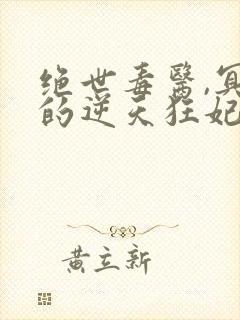 绝世毒醫,冥
的逆天狂妃
黄立新